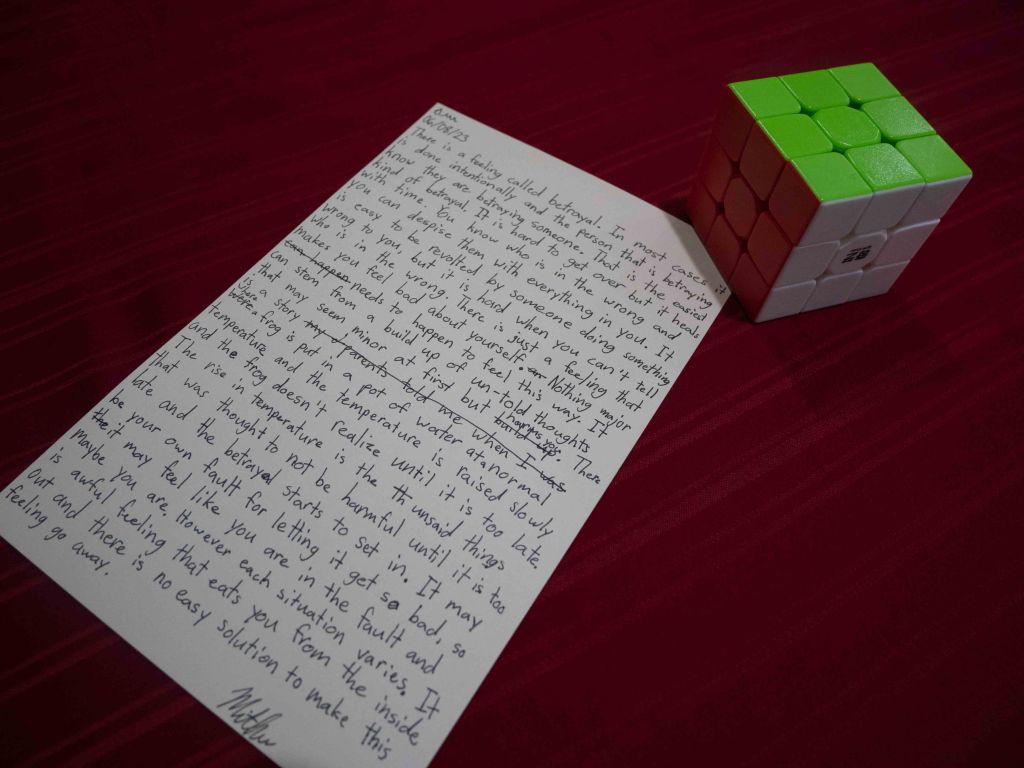 06/08/23
There is a feeling called betrayal. In most cases it
is done intentionally and the person that is betraying
know they are betraying someone. That is the easiest
kind of betrayal. It is hard to get over but it heals
with time. You know who is in the wrong and
you can despise them with everything in you. It
is easy to be revolted by someone doing something
wrong to you, but it is hard when you can't tell
who is in the wrong. There is just a feeling that
makes you feel bad about yourself. or Nothing major
can happen needs to happen to feel this way. It
can stem from a build up of un-told thoughts
that may seem minor at first but harms you. build up. There
is a story my parents told me when I was
where a frog is put in a pot of water at a normal
temperature and the temperature is raised slowly
and the frog doesn't realize until it is too late.
The rise in temperature is the th unsaid things
that was thought to not be harmful until it is too
late and the betrayal starts to set in. It may
be your own fault for letting it get so bad, so
the it may feel like you are in the fault and
maybe you are. However each situation varies. It
is awful feeling that eats you from the inside
out and there is no easy solution to make this
feeling go away.